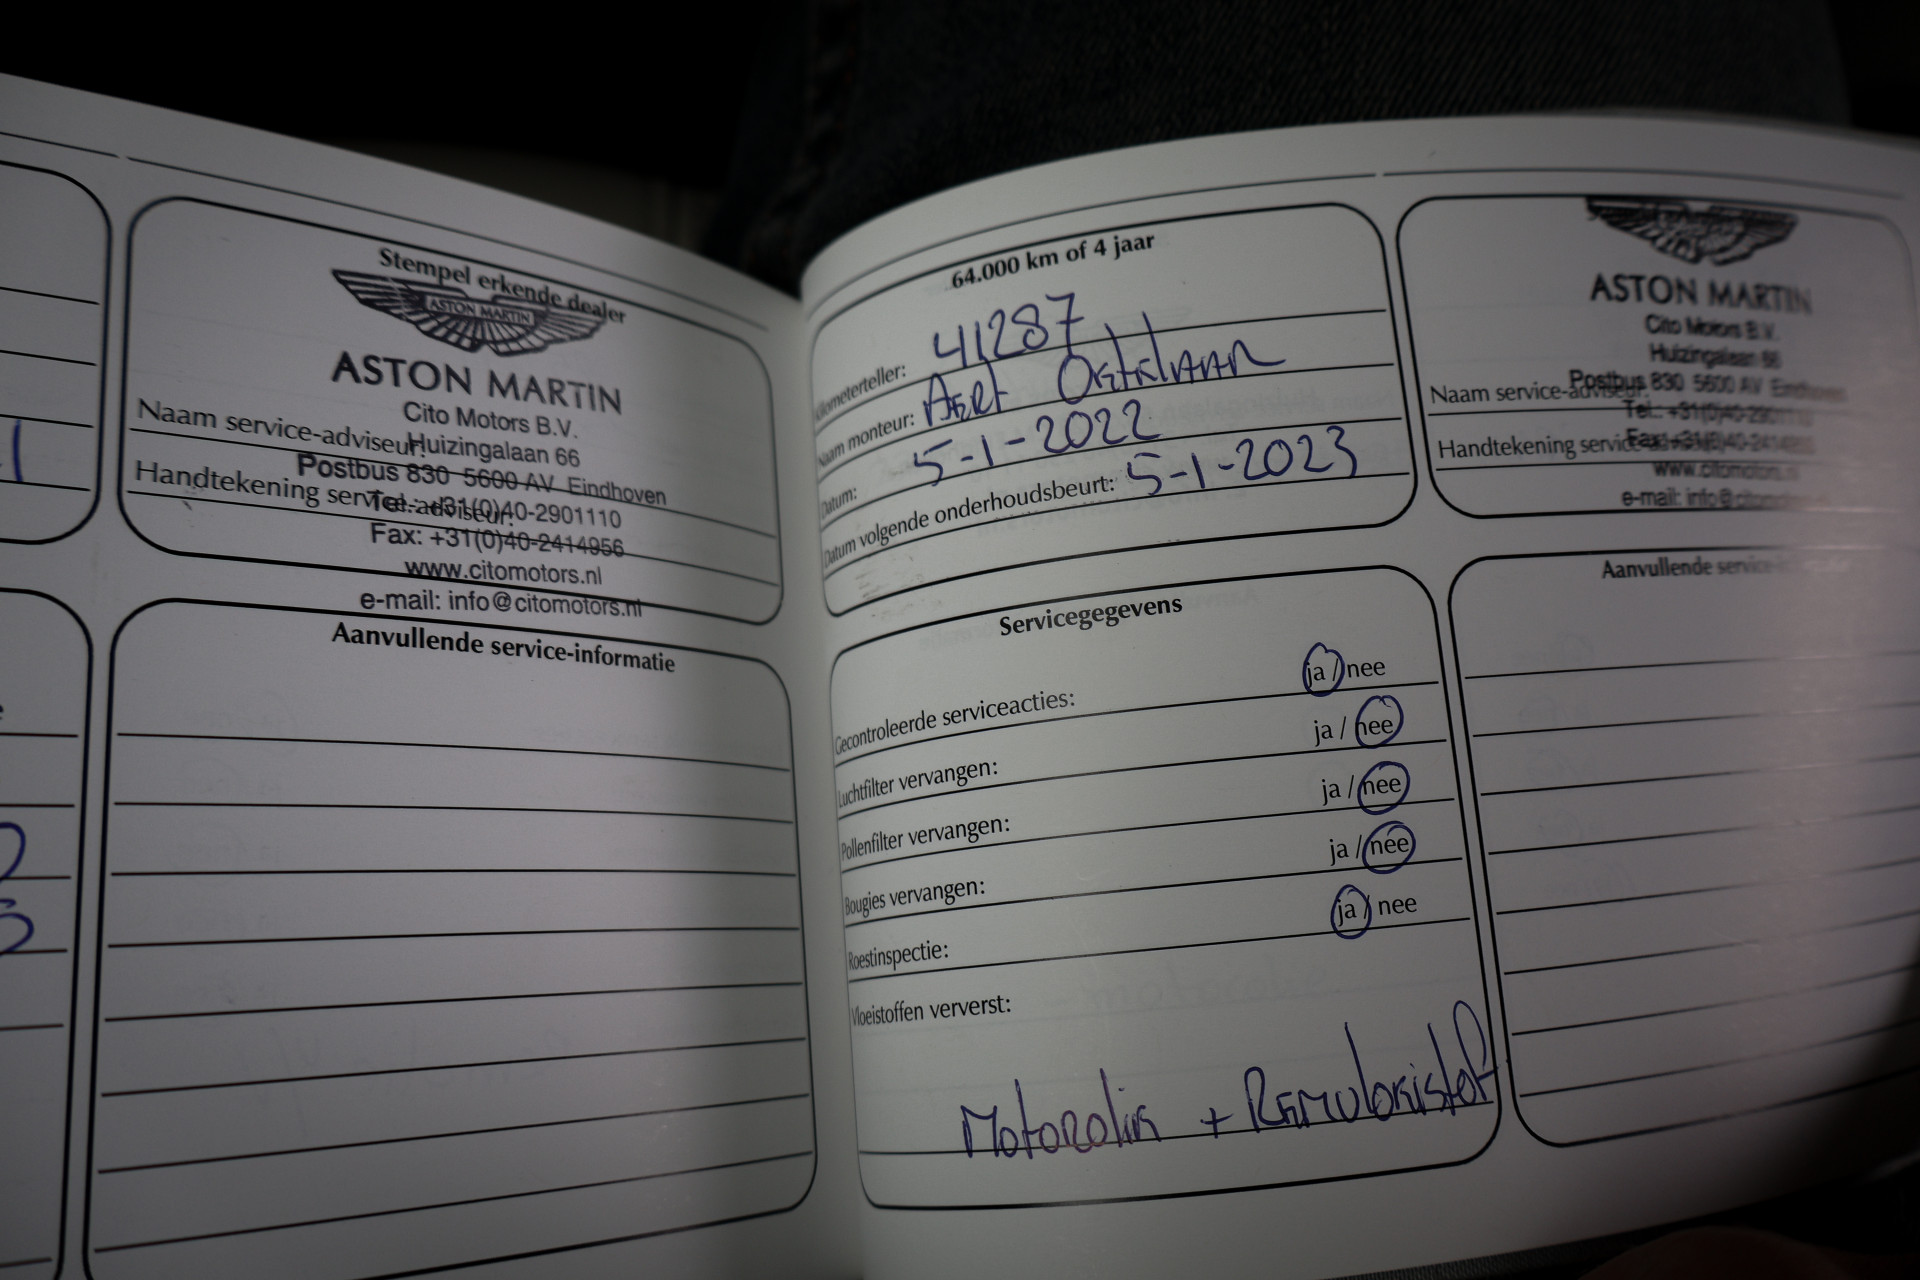 Stempel erkende dealer
ASTON MARTIN
ASTON MARTIN
Cito Motors B.V.
Naam service-adviseur:
Huizingalaan 66
Postbus 830 5600 AV Eindhoven
Handtekening service-adviseur:
Tel.: +31(0)40-2901110
Fax: +31(0)40-2414956
www.citomotors.nl
e-mail: info@citomotors.nl
Aanvullende service-informatie
64.000 km of 4 jaar
Kilometerteller: 41287
Naam monteur: Aert
Datum: 5-1-2022
Datum volgende onderhoudsbeurt: 5-1-2023
Servicegegevens
Gecontroleerde serviceacties: ja / nee
Luchtfilter vervangen: ja / nee
Pollenfilter vervangen: ja / nee
Bougies vervangen: ja / nee
Roestinspectie: ja / nee
Vloeistoffen ververst:
Motorolie + Remvloeistof
ASTON MARTIN
Cito Motors B.V.
Huizingalaan 66
Postbus 830 5600 AV Eindhoven
Naam service-adviseur:
Tel.: +31(0)40-2901110
Handtekening service
Fax: +31(0)40-2414956
www.citomotors.nl
e-mail: info@citomotors
Aanvullende service-